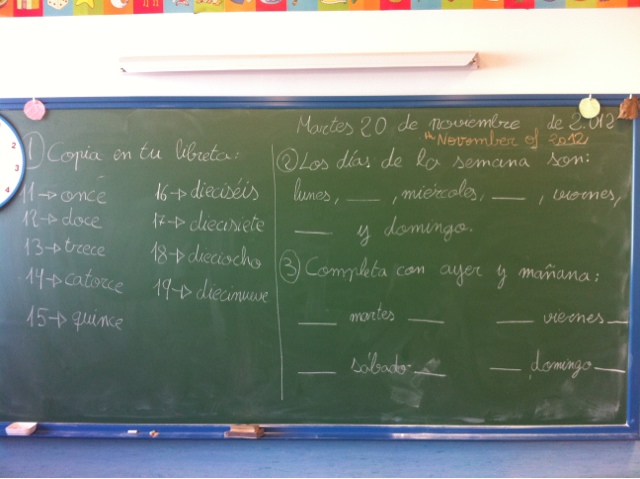 Martes 20 de noviembre de 2.012
"November of 2012
1) Copia en tu libreta:
11→once
12→doce
13→trece
14→catorce
15→quince
16→dieciséis
17→diecisiete
18→dieciocho
19→diecinueve
2 Los días de la semana son:
lunes, ___ , miércoles, ___ , viernes,
___ y domingo.
3 Completa con ayer y mañana:
___ martes ___ ___ viernes ___
___ sábado ___ ___ domingo ___
2
3
4